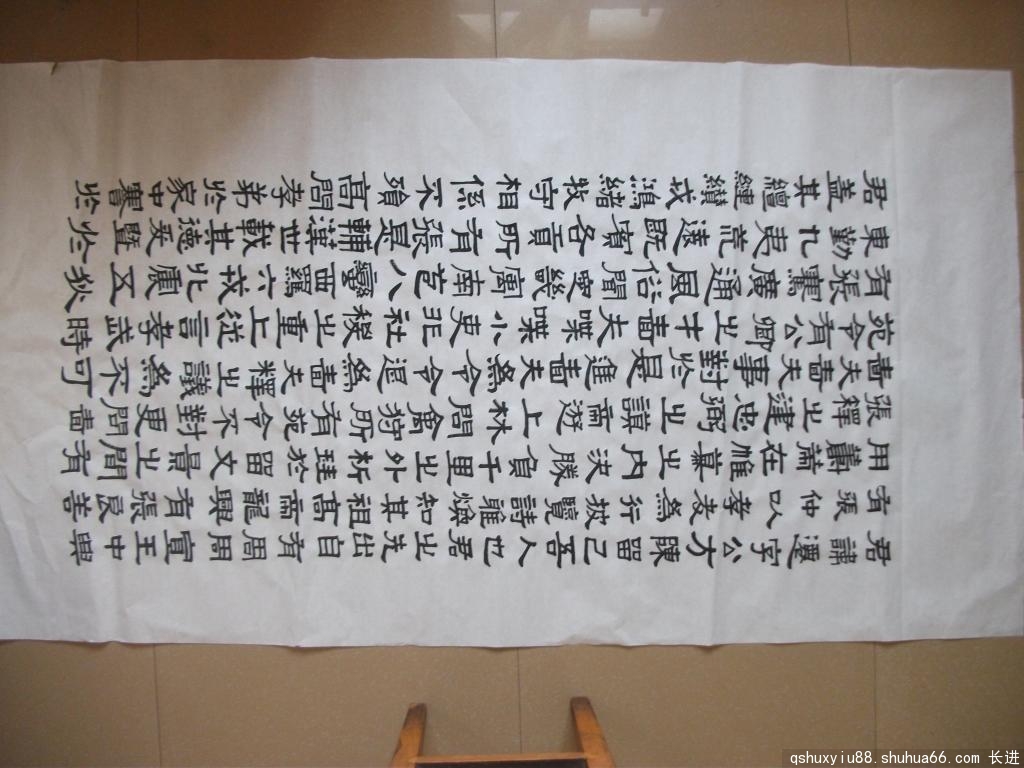 君諱遷字公方陳留己吾人也君之先出自有周周宣王中興
有張仲以孝友為行披覽詩雅煥知其祖高帝龍興有張良善
用籌策在帷幕之內決勝負千里之外析珪於留文景之間有
張釋之建忠弼之謨帝遊上林問禽狩所有苑令不對更問嗇
嗇夫嗇夫事對於是進嗇夫為令令退為嗇夫釋之議為不可
苑令有公卿之才嗇夫喋喋小吏非社稷之重上從言孝武時
有張騫廣通風俗開定畿寓南苞八蠻西羈六戎北震五狄
東勤九夷荒遠既賓各貢所有張是輔漢世載其德爰暨於
君蓋其繵縺纘戎鴻緒牧守相係不殞高問孝弟於家中謇於
qshuxyiu88.shuhua66.com 长进